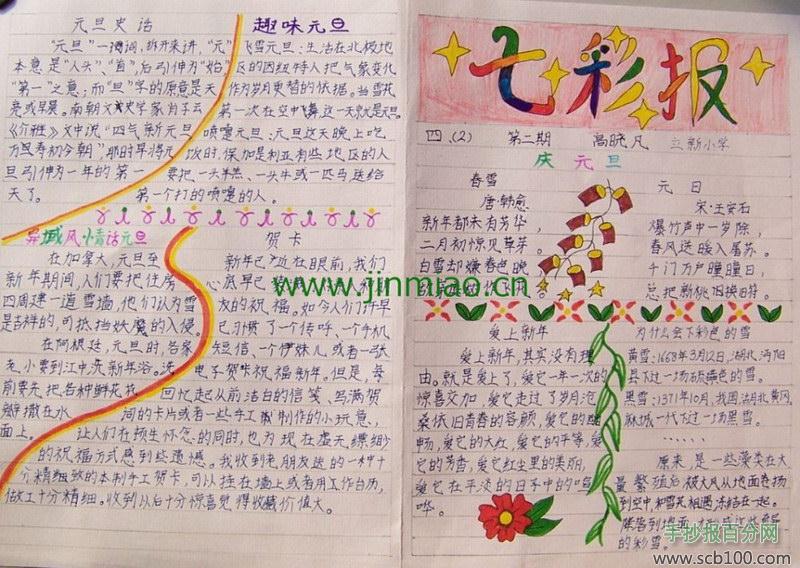 元旦史话
"元旦"一词,拆开来讲,"元"
本意是"人头"、"首",后引伸为"始"
"第一"之意;而"旦"字的原意是天
亮或早晨。南朝文史学家肖子云
《介雅》文中说"四气新元旦,
万民寿初今朝"
旦引伸为一年的第一
天了。
趣味元旦
飞雪元旦:生活在北极地
区的因纽特人把气象变化
作为岁月更替的依据。当雪花
第一次在空中飞舞这一天就是元旦。
喷嚏元旦:元旦这天晚上吃
饭时,保加利亚有些地区的人
要把一头羊羔、一头牛或一匹马送给
第一个打的喷嚏的人。
异域风情话元旦
在加拿大,元旦至
新年期间,人们要把住房
四周建一道雪墙,他们认为雪
是吉祥的,可抵挡妖魔的入侵。
在阿根廷,元旦时,各家
老小要到江中洗新年浴。洗
前要先把各种鲜花花
瓣撒在水
面上。
贺卡
新年已近在眼前,我们
友的祝福。如今人们打早
已习惯了一个传呼、一个手机
短信、一个伊妹儿或者一张
电子贺卡祝福新年。但是,每
回忆起从前洁白的信笺、写满贺
词的卡片或者一些手工制作的小玩意,
让人们在顿生怀念的同时,也为现在虚无缥缈
的祝福方式感到些遗憾。我收到老朋友送的一种十
分精细致的本制手工贺卡,可以挂在墙上或者用工作台历,
做工十分精细。收到以后十分惊喜觉得收藏价值大。
www.jinmao.cn
七彩报
四、(2) 第二期 高晓凡 立新小学
庆元旦
春雪
唐·韩愈
新年都未有芳华,
二月初惊见草芽。
白雪却嫌春色晚,
元日
宋·王安石
爆竹声中一岁除,
春风送暖入屠苏。
千门万户曈曈日,
总把新桃旧换旧符。
爱上新年
爱上新年,其实没有理
由。就是爱上了,爱它一年一次的
惊喜交加,爱它走过了岁月沧
桑依旧青春的容颜,爱它的酣
畅,爱它的大红,爱它的平等,爱
它的芳香,爱它红尘里的美丽,
爱它在平淡的日子中的喧
哗。
为什么会下彩色的雪
黄雪:1668年3月2日,湖北沔阳
县下过一场硕黄色的雪。
黑雪:1371年10月,我国湖北黄冈
麻城一代下过一场黑雪。
……
原来,是一些藻类在大
量繁殖后被大风从地面卷扬
到空中和雪花相遇冻结在一起。
的彩雪。
手抄报百分网
www.scb100.com